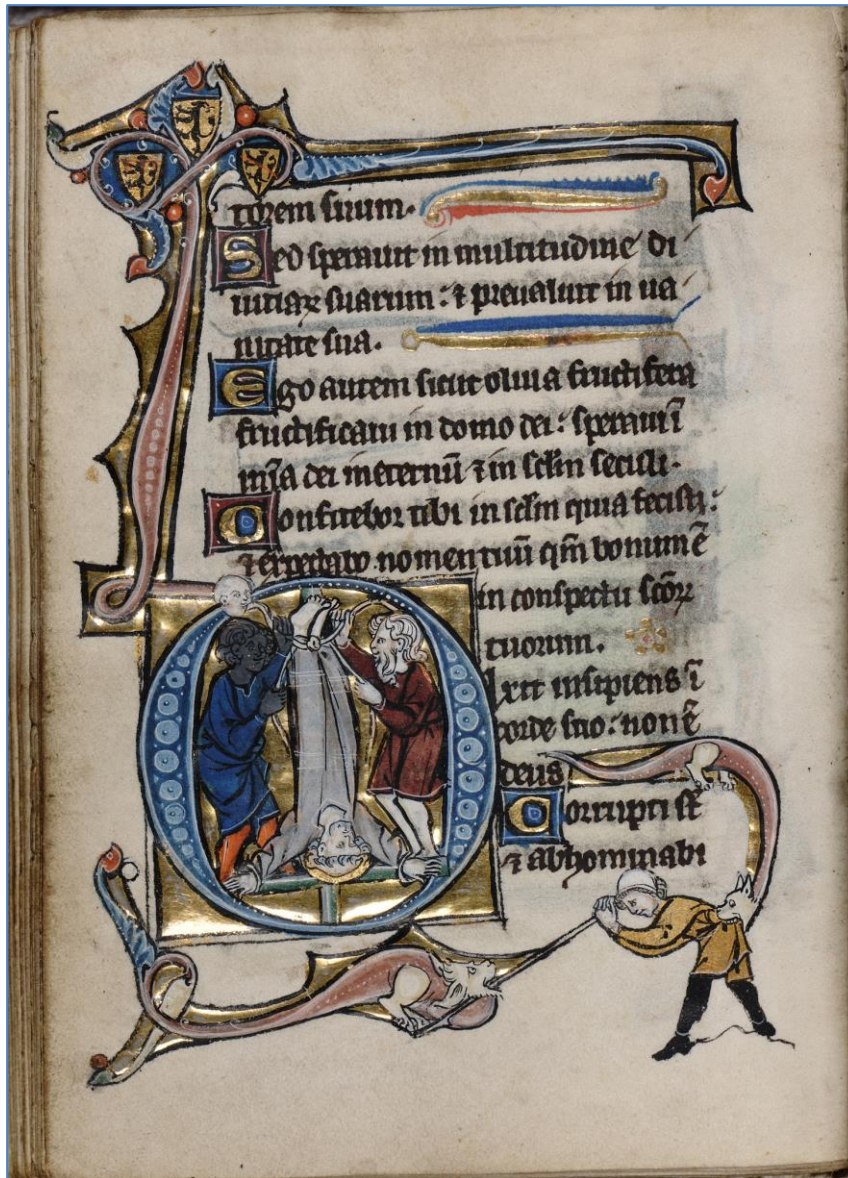 torem suum.
Sed sperauit in multitudine di
uitiaꝝ suarum: ⁊ preualuit in ua
nitate sua.
Ego autem sicut oliua fructifera
fructificaui in domo dei: speraui ĩ
mĩa dei in eternũ ⁊ in sclm̃ seculi.
Confitebor tibi in sclm̃ quia fecisti:
⁊ expectabo nomen tuũ qm̃ bonum ẽ
in conspectu sc̃oꝝ
tuorum.
Dixit insipiens ĩ
corde suo: non ẽ
deus
Corrupti sũt
⁊ abhominabi